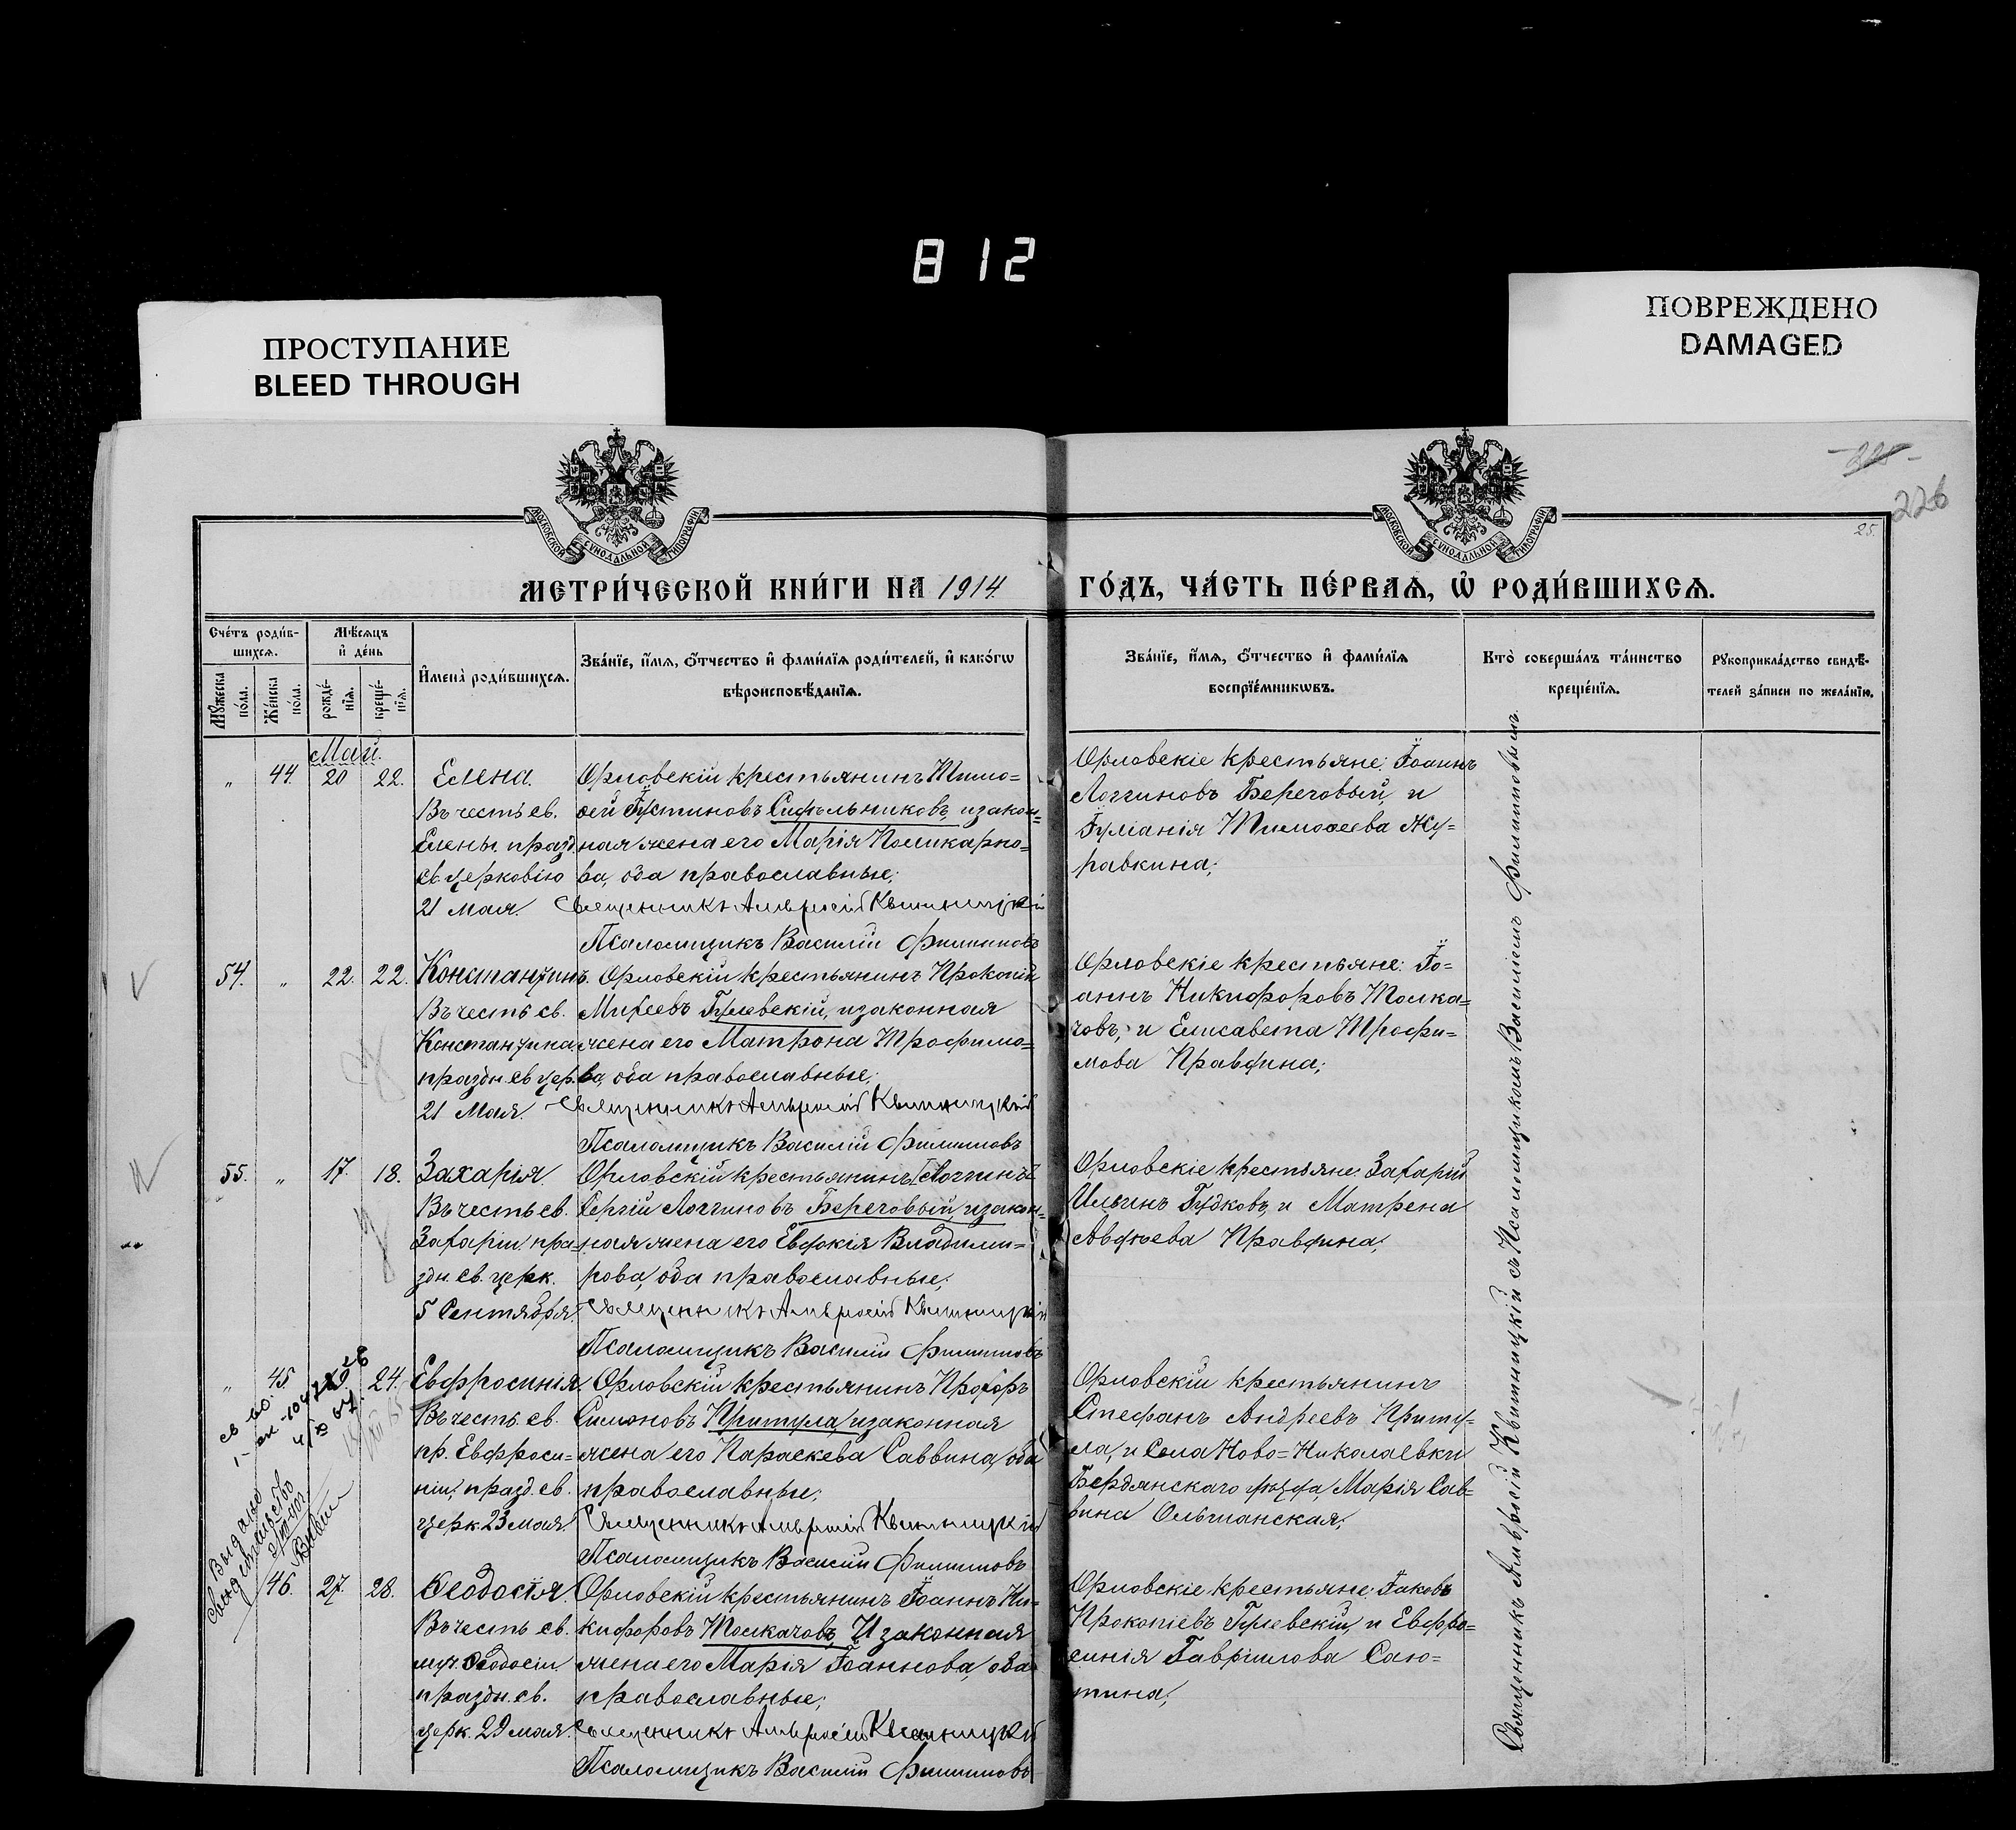 812
ПРОСТУПАНИЕ
BLEED THROUGH
ПОВРЕЖДЕНО
DAMAGED
226
25.
МОСКОВСКОЙ СѴНОДАЛЬНОЙ ТИПОГРАФІИ
МОСКОВСКОЙ СѴНОДАЛЬНОЙ ТИПОГРАФІИ
МЕТРИ́ЧЕСКОЙ КНИ́ГИ НА 1914. ГО́ДЪ, ЧА́СТЬ ПЕ́РВАѦ, Ѡ РОДИ́ВШИХСѦ.
Сче́тъ роди́в-
шихсѧ.
Мꙋжеска по́ла.
Же́нска по́ла.
Мѣ́сѧцъ
и҆ де́нь
рожде́-
нїѧ.
креще́-
нїѧ.
И҆мена̀ роди́вшихсѧ.
Зва́нїе, и҆́мѧ, ѻ҆́тчество и҆ фами́лїѧ роди́телей, и҆ како́гѡ
вѣроисповѣ́данїѧ.
Зва́нїе, и҆́мѧ, ѻ҆́тчество и҆ фами́лїѧ
воспрїе́мникѡвъ.
Кто̀ соверша́лъ та́инство
креще́нїѧ.
Рꙋкоприкла́дство свидѣ́-
телей за́писи по жела́нїю.
Май.
" 44. 20 22. Елена.
Въ честь св.
Елены празд.
св. церковію
21 мая.
Орловскій крестьянинъ Тимо=
ѳей Іустиновъ Сидѣльниковъ, и закон=
ная жена его Марія Поликарпо=
ва, оба православные;
Священникъ Амвросій Квитницкій
Псаломщикъ Василій Филипповъ
Орловскіе крестьяне: Іоаннъ
Логгиновъ Береговый, и
Іуліанія Тимоѳеева Жу=
равкина;
54. " 22. 22. Константинъ.
Въ честь св.
Константина
праздн. св. цер.
21 Мая.
Орловскій крестьянинъ Прокопій
Михеевъ Гулевскій, и законная
жена его Матрона Трофимо=
ва, оба православные;
Священникъ Амвросій Квитницкій
Псаломщикъ Василій Филипповъ
Орловскіе крестьяне: Іо=
аннъ Никифоровъ Толка=
човъ, и Елисавета Трофи=
мова Правдина;
55. " 17. 18. Захарія.
Въ честь св.
Захаріи, пра=
здн. св. церк.
5 Сентября.
Орловскій крестьянинъ [Логгинъ]
Сергій Логгиновъ Береговый, и закон=
ная жена его Евдокія Владими=
рова, оба православные;
Священникъ Амвросій Квитницкій
Псаломщикъ Василій Филипповъ
Орловскіе крестьяне: Захарій
Ильинъ Гудковъ, и Матрена
Авдѣева Правдина;
" 45. 24. Евфросинія.
Въ честь св.
пр. Евфроси=
ніи, празд. св.
церк. 23 мая.
Орловскій крестьянинъ Прохоръ
Симоновъ Притула, и законная
жена его Параскева Саввина, оба
православные;
Священникъ Амвросій Квитницкій
Псаломщикъ Василій Филипповъ
Орловскій крестьянинъ
Стефанъ Андреевъ Приту=
ла, и села Ново=Николаевки
Бердянскаго уѣзда, Марія Сав=
вина Ольшанская;
Выдано
свидетельство
46. 27. 28. Ѳеодосія.
Въ честь св.
муч. Ѳеодосіи
праздн. св.
церк. 29 мая.
Орловскій крестьянинъ Іоаннъ Ни=
кифоровъ Толкачовъ, и законная
жена его Марія Іоаннова, оба
православные;
Священникъ Амвросій Квитницкій
Псаломщикъ Василій Филипповъ
Орловскіе крестьяне: Іаковъ
Прокопіевъ Гулевскій, и Евфро=
синія Гавріилова Саю=
тина;
Священникъ Амвросій Квитницкій съ Псаломщикомъ Василіемъ Филипповымъ.